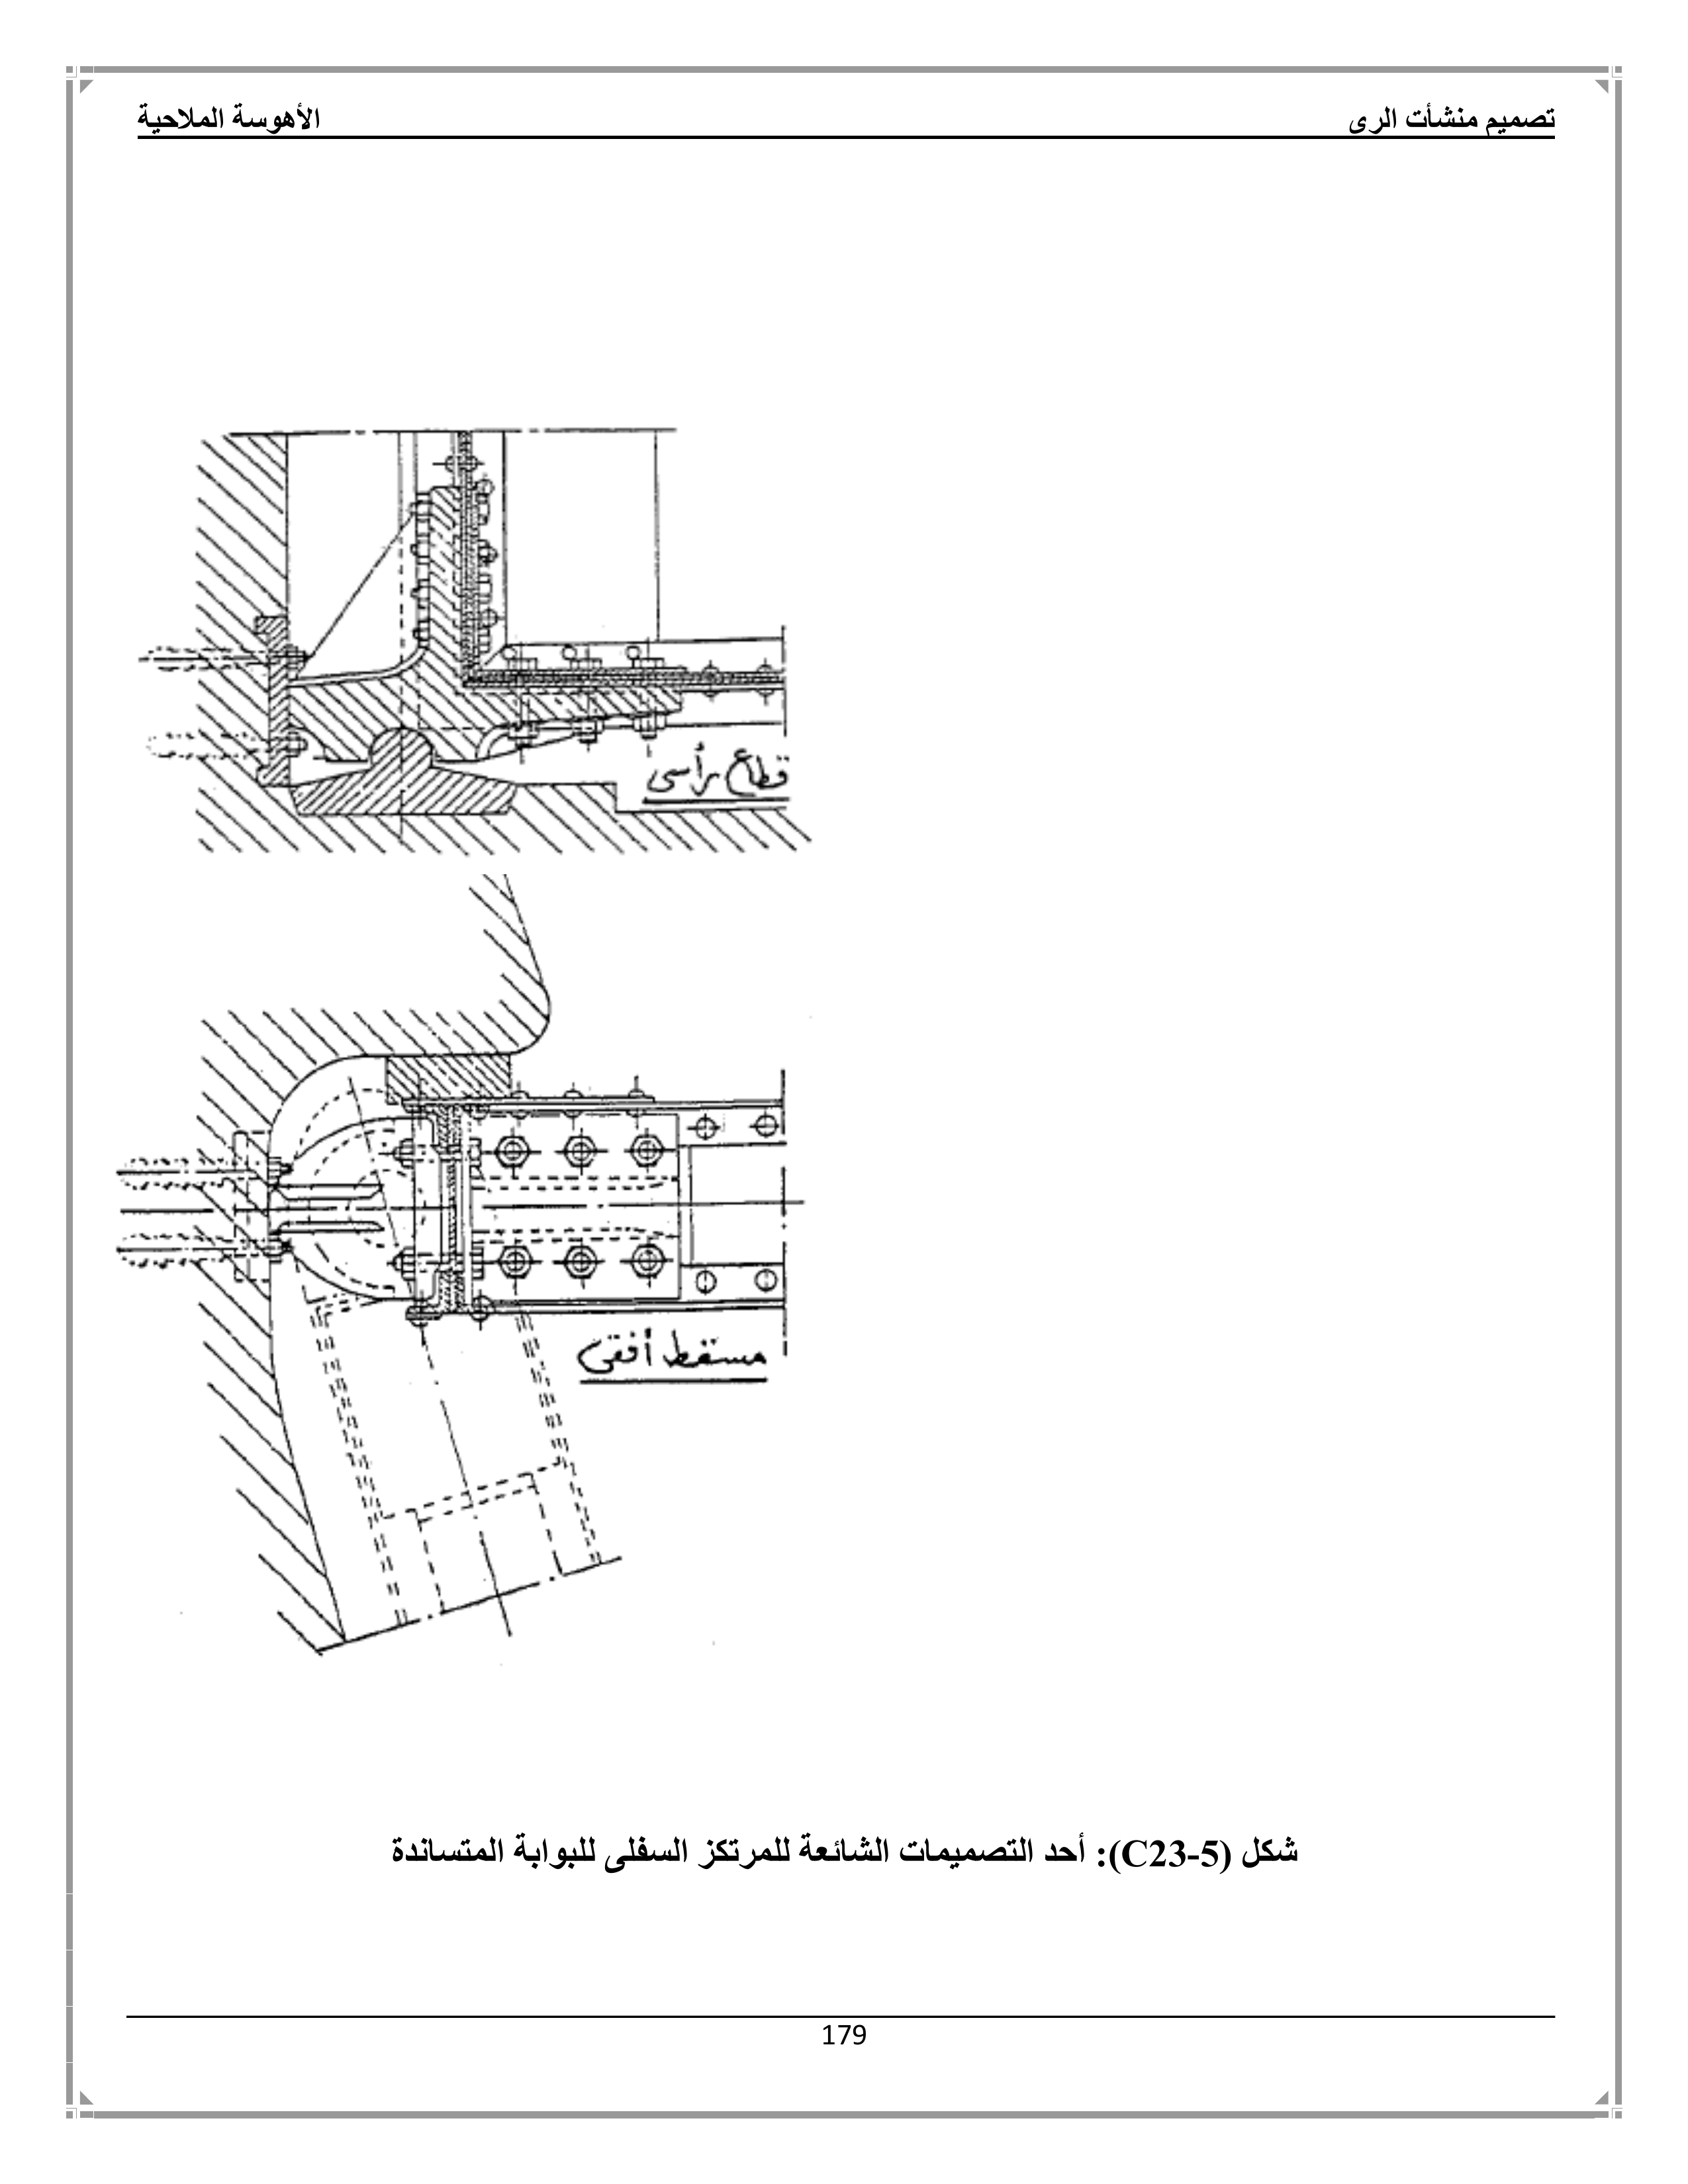 تصميم منشأت الرى
الأهوسة الملاحية
قطاع رأسى
مسقط أفقى
شكل (C23-5): أحد التصميمات الشائعة للمرتكز السفلى للبوابة المتساندة
179